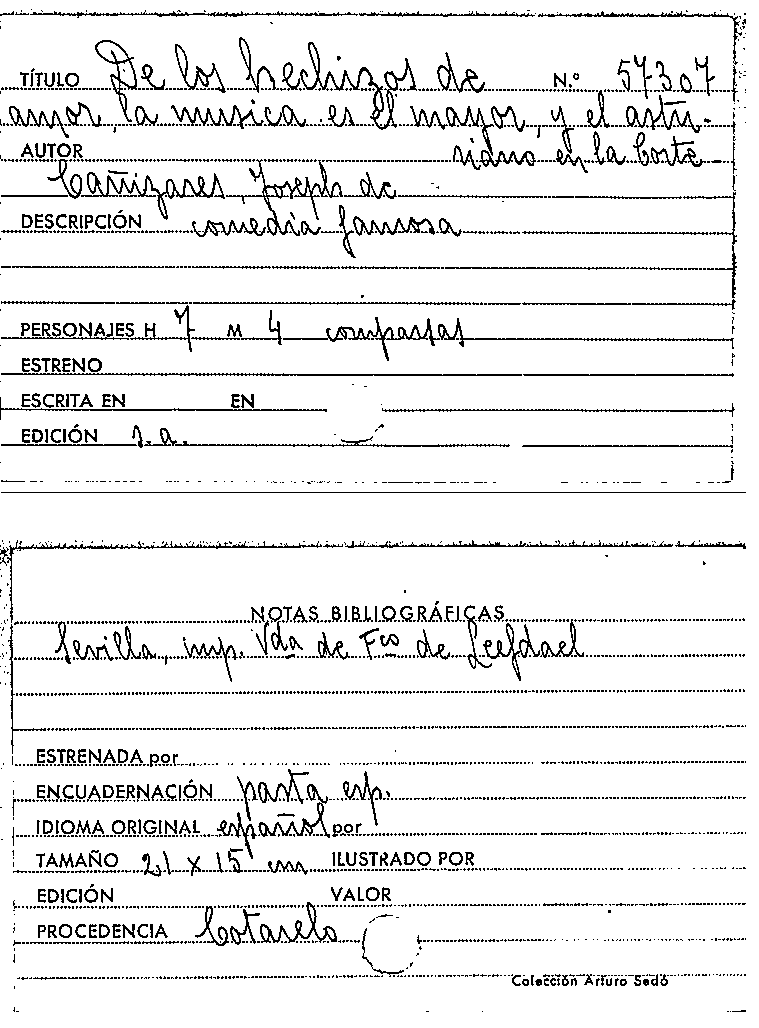 TÍTULO De los hechizos de N.º 57307
amor, la musica es el mayor, y el astu-
AUTOR riano en la Corte
Cañizares, Joseph de
DESCRIPCIÓN comedia famosa
PERSONAJES H 7 M 4 comparsas
ESTRENO
ESCRITA EN EN
EDICIÓN s.a.
NOTAS BIBLIOGRÁFICAS
Sevilla, imp. Vda de Fco de Leefdael
ESTRENADA por
ENCUADERNACIÓN pasta esp.
IDIOMA ORIGINAL español por
TAMAÑO 21 x 15 cm ILUSTRADO POR
EDICIÓN VALOR
PROCEDENCIA Cotarelo
Colección Arturo Sedó